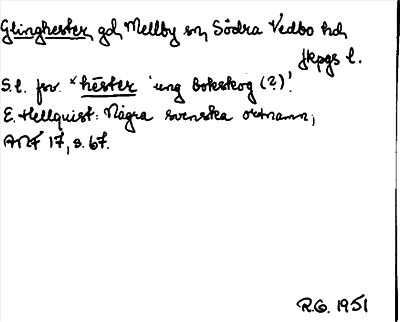 Glinghester, gd, Mellby sn, Södra Vedbo hd
Jkpgs l.
S.l. fsv. *hēster 'ung bokskog (?)'.
E. Hellquist: Några svenska ortnamn,
ANF 17, s. 67.
R.G. 1951